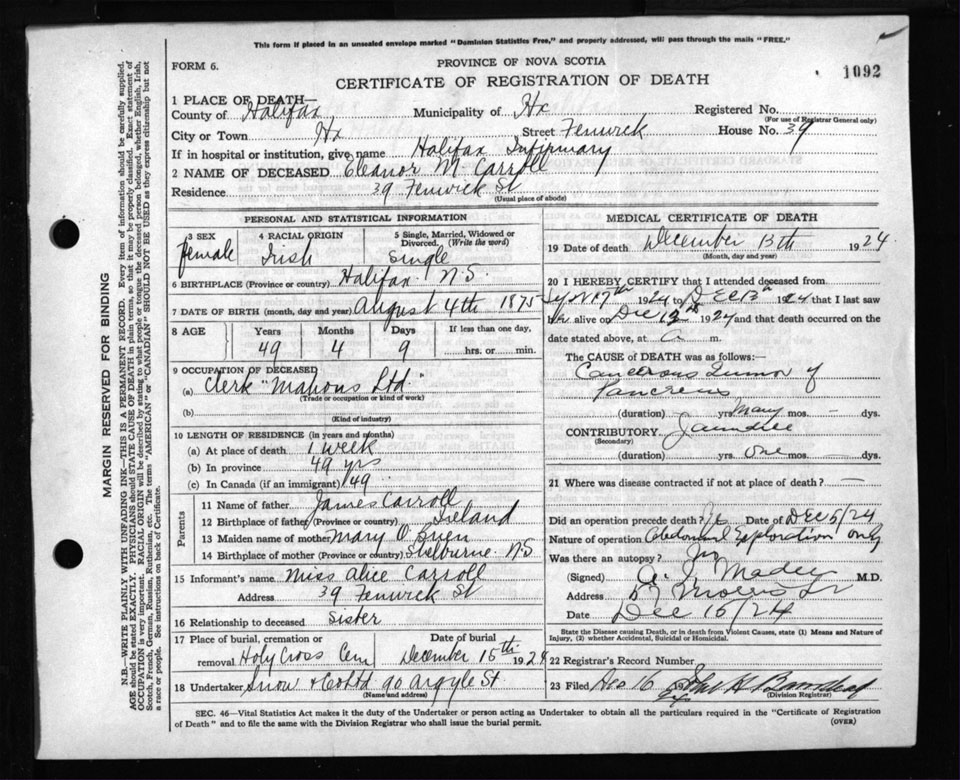 This form if placed in an unsealed envelope marked "Dominion Statistics Free," and properly addressed, will pass through the mails "FREE."
FORM 6.
PROVINCE OF NOVA SCOTIA
CERTIFICATE OF REGISTRATION OF DEATH
1092
1 PLACE OF DEATH—
County of Halifax Municipality of Hx Registered No.
(For use of Registrar General only)
City or Town Hx Street Fenwick House No. 39
If in hospital or institution, give name Halifax Infirmary
2 NAME OF DECEASED Eleanor M. Carroll
Residence 39 Fenwick St
(Usual place of abode)
PERSONAL AND STATISTICAL INFORMATION
3 SEX Female
4 RACIAL ORIGIN Irish
5 Single, Married, Widowed or Divorced. (Write the word) Single
6 BIRTHPLACE (Province or country) Halifax N.S.
7 DATE OF BIRTH (month, day and year) August 4th 1875
8 AGE Years Months Days If less than one day,
49 4 9 hrs. or min.
9 OCCUPATION OF DECEASED
(a) Clerk "Mahons Ltd."
(Trade or occupation or kind of work)
(b)
(Kind of industry)
10 LENGTH OF RESIDENCE (in years and months)
(a) At place of death 1 week
(b) In province 49 yrs
(c) In Canada (if an immigrant) 49
Parents
11 Name of father James Carroll
12 Birthplace of father (Province or country) Ireland
13 Maiden name of mother Mary O.
14 Birthplace of mother (Province or country) Shelburne N.S
15 Informant's name Miss Alice Carroll
Address 39 Fenwick St
16 Relationship to deceased Sister
17 Place of burial, cremation or removal Holy Cross Cem
Date of burial December 15th 1924
18 Undertaker Snow & Co Ltd 90 Argyle St.
(Name and address)
MEDICAL CERTIFICATE OF DEATH
19 Date of death December 13th 1924
(Month, day and year)
20 I HEREBY CERTIFY that I attended deceased from
1924 to Dec 13th 1924 that I last saw
her alive on Dec 1924 and that death occurred on the
date stated above, at a. m.
The CAUSE of DEATH was as follows:—
Cancerous Tumor of
Pancreas
(duration) yrs. Many mos. — dys.
CONTRIBUTORY Jaundice
(Secondary)
(duration) yrs. One mos. — dys.
21 Where was disease contracted if not at place of death? —
Did an operation precede death? Yes Date of Dec 5/24
Nature of operation Abdominal Exploration only
Was there an autopsy?
(Signed) A. J. Mader M.D.
Address 57 Morris St
Date Dec 15/24
State the Disease causing Death, or in death from Violent Causes, state (1) Means and Nature of Injury, (2) whether Accidental, Suicidal or Homicidal.
22 Registrar's Record Number
23 Filed Dec 16 John H Barnstead
(Division Registrar)
SEC. 46—Vital Statistics Act makes it the duty of the Undertaker or person acting as Undertaker to obtain all the particulars required in the "Certificate of Registration
of Death" and to file the same with the Division Registrar who shall issue the burial permit.
(OVER)
MARGIN RESERVED FOR BINDING
N.B.—WRITE PLAINLY WITH UNFADING INK—THIS IS A PERMANENT RECORD. Every item of information should be carefully supplied.
AGE should be stated EXACTLY. PHYSICIANS should STATE CAUSE OF DEATH in plain terms, so that it may be properly classified. Exact statement of
OCCUPATION is very important. RACIAL ORIGIN will be described by stating to what people or tongue the deceased person belonged, whether English, Irish,
Scotch, French, German, Russian, Ruthenian, etc. The terms "AMERICAN" or "CANADIAN" SHOULD NOT BE USED as they express citizenship but not
a race or people. See instructions on back of Certificate.